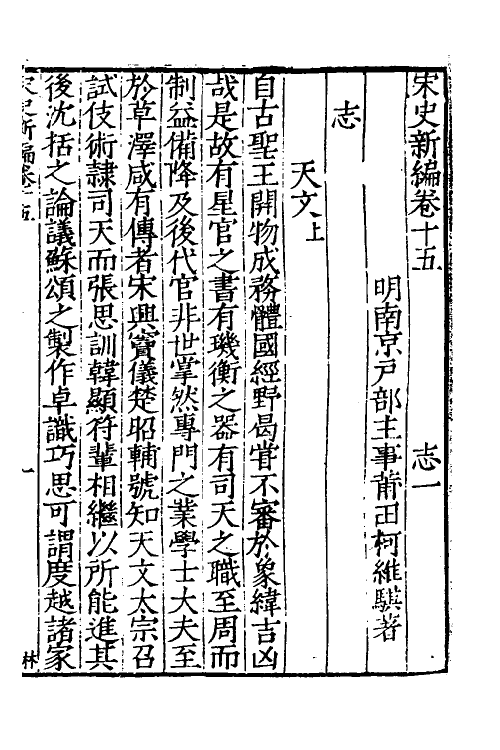 宋史新編卷十五　志一
明南京戸部主事莆田柯維騏著
志
天文上
自古聖王開物成務體國經野曷甞不審於象緯吉凶
哉是故有星官之書有璣衡之器有司天之職至周而
制益備降及後代官非世掌然專門之業學士大夫至
於草澤咸有傳者宋興竇儀楚昭輔號知天文太宗召
試伎術隷司天而張思訓韓顯符輩相繼以所能進其
後沈括之論議蘇頌之製作卓識巧思可謂度越諸家
宋史新編卷十五　一　林